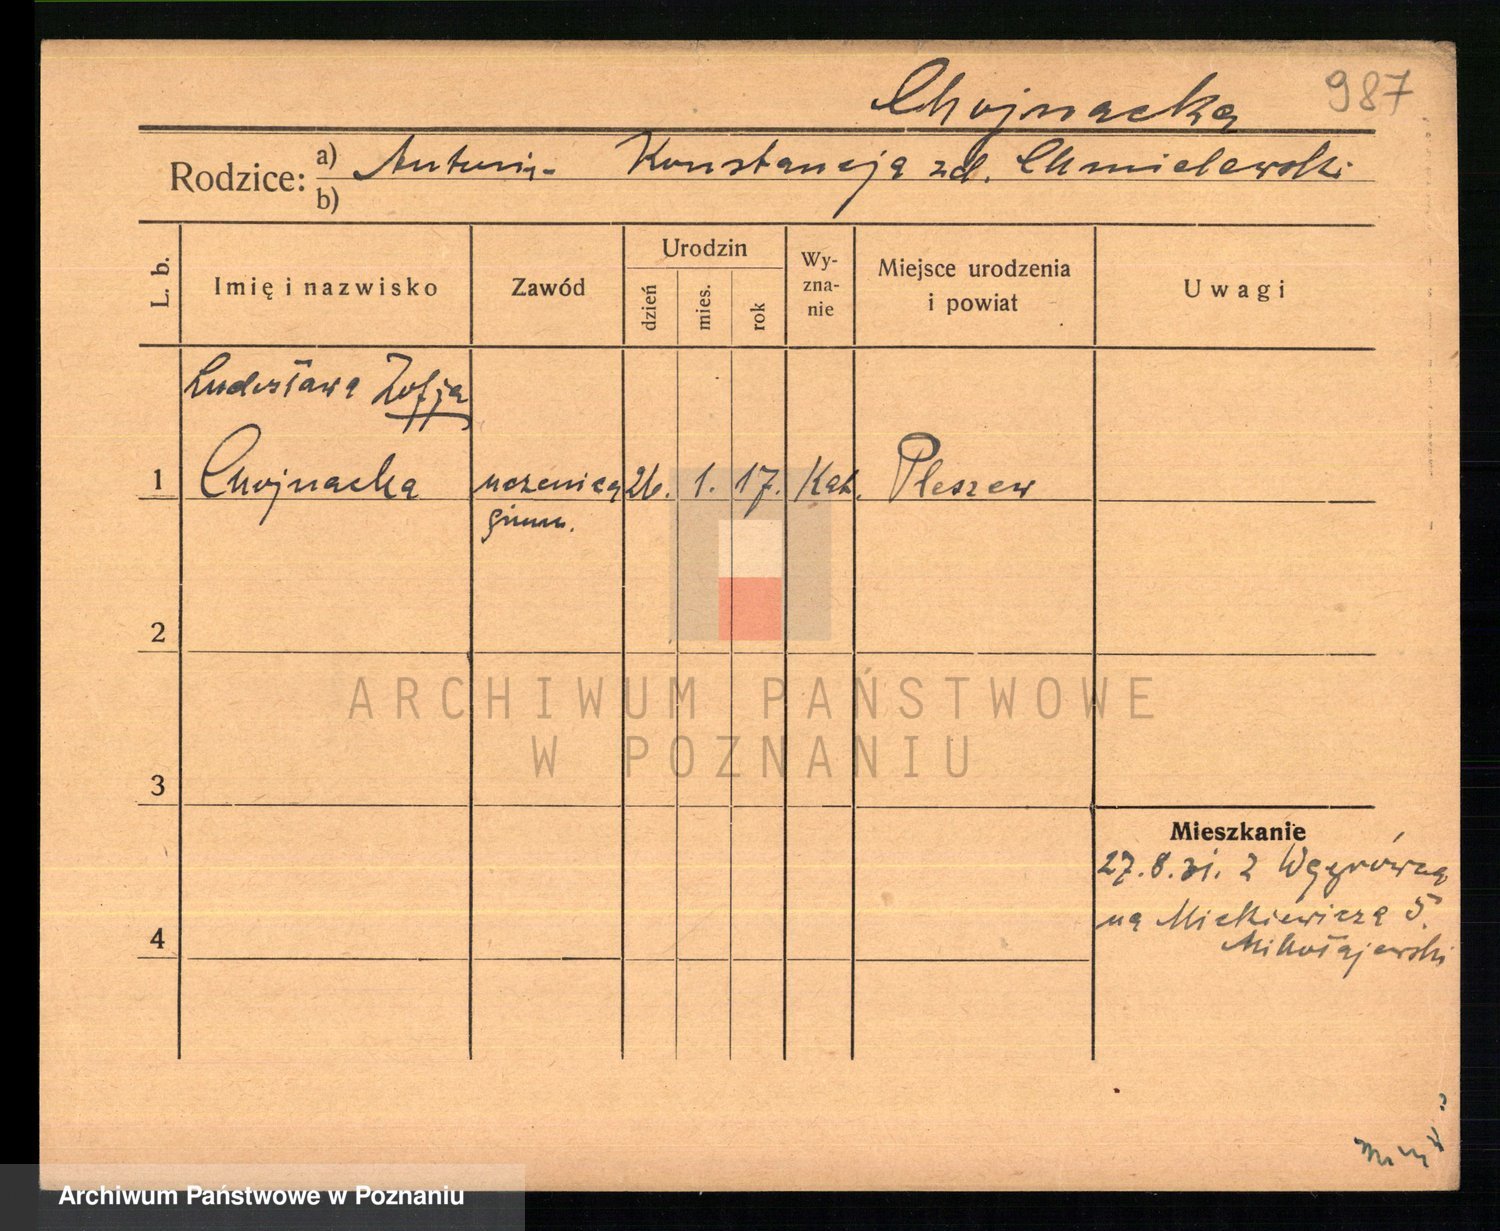 Chojnacka 987
Rodzice: a) Antoni - Konstancja zd. Chmielewski
b)
L. b. Imię i nazwisko Zawód Urodzin dzień mies. rok Wy-zna-nie Miejsce urodzenia i powiat Uwagi
Ludosława Zofja
1 Chojnacka uczenica 26. 1. 17. Kat. Pleszew
gimn.
2
ARCHIWUM PAŃSTWOWE
W POZNANIU
3
Mieszkanie
27.8.31. z
na Mickiewicza 5.
4 Mikołajewski
Archiwum Państwowe w Poznaniu